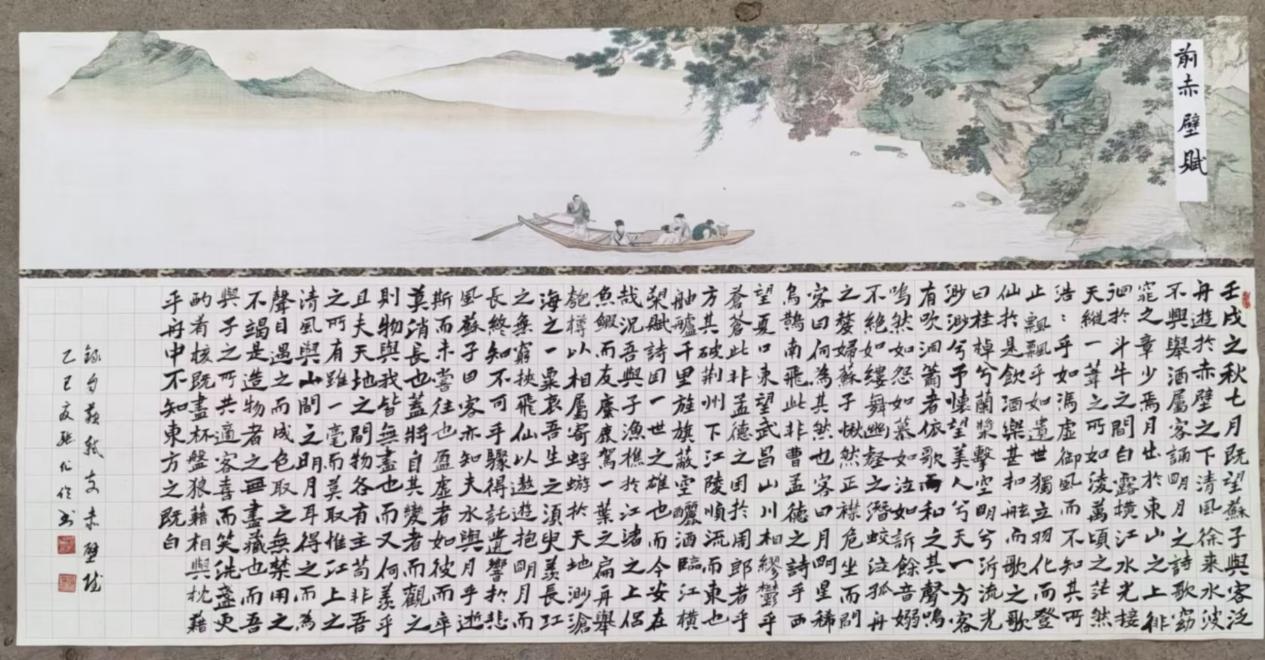 前赤壁賦
壬戌之秋七月既望蘇子與客泛
舟遊於赤壁之下清風徐來水波
不興舉酒屬客誦明月之詩歌窈
窕之章少焉月出於東山之上徘
徊於斗牛之間白露橫江水光接
天縱一葦之所如淩萬頃之茫然
浩:乎如馮虛御風而不知其所
止飄飄乎如遺世獨立羽化而登
仙於是飲酒樂甚扣舷而歌之歌
曰桂棹兮蘭槳擊空明兮泝流光
渺渺兮予懷望美人兮天一方客
有吹洞簫者依歌而和之其聲嗚
嗚然如怨如慕如泣如訴餘音嫋
不絕如縷舞幽壑之潛蛟泣孤舟
之嫠婦蘇子愀然正襟危坐而問
客曰何為其然也客曰月明星稀
烏鵲南飛此非曹孟德之詩乎西
望夏口東望武昌山川相繆鬱乎
蒼蒼此非孟德之困於周郎者乎
方其破荊州下江陵順流而東也
舳艫千里旌旗蔽空釃酒臨江橫
槊賦詩固一世之雄也而今安在
哉況吾與子漁樵於江渚之上侶
魚鰕而友麋鹿駕一葉之扁舟舉
匏樽以相屬寄蜉蝣於天地渺滄
海之一粟哀吾生之須臾羨長江
之無窮挾飛仙以遨遊抱明月而
長終知不可乎驟得託遺響於悲
風蘇子曰客亦知夫水與月乎逝
斯而未嘗往也盈虛者如彼而卒
莫消長也蓋將自其變者而觀之
則物與我皆無盡也而又何羨乎
且夫天地之間物各有主苟非吾
之所有雖一毫而莫取惟江上之
清風與山間之明月耳得之而為
聲目遇之而成色取之無禁用之
不竭是造物者之無盡藏也而吾
與子之所共適客喜而笑洗盞更
酌肴核既盡杯盤狼藉相與枕藉
乎舟中不知東方之既白
錄句蘇軾文赤壁賦
乙巳夏書